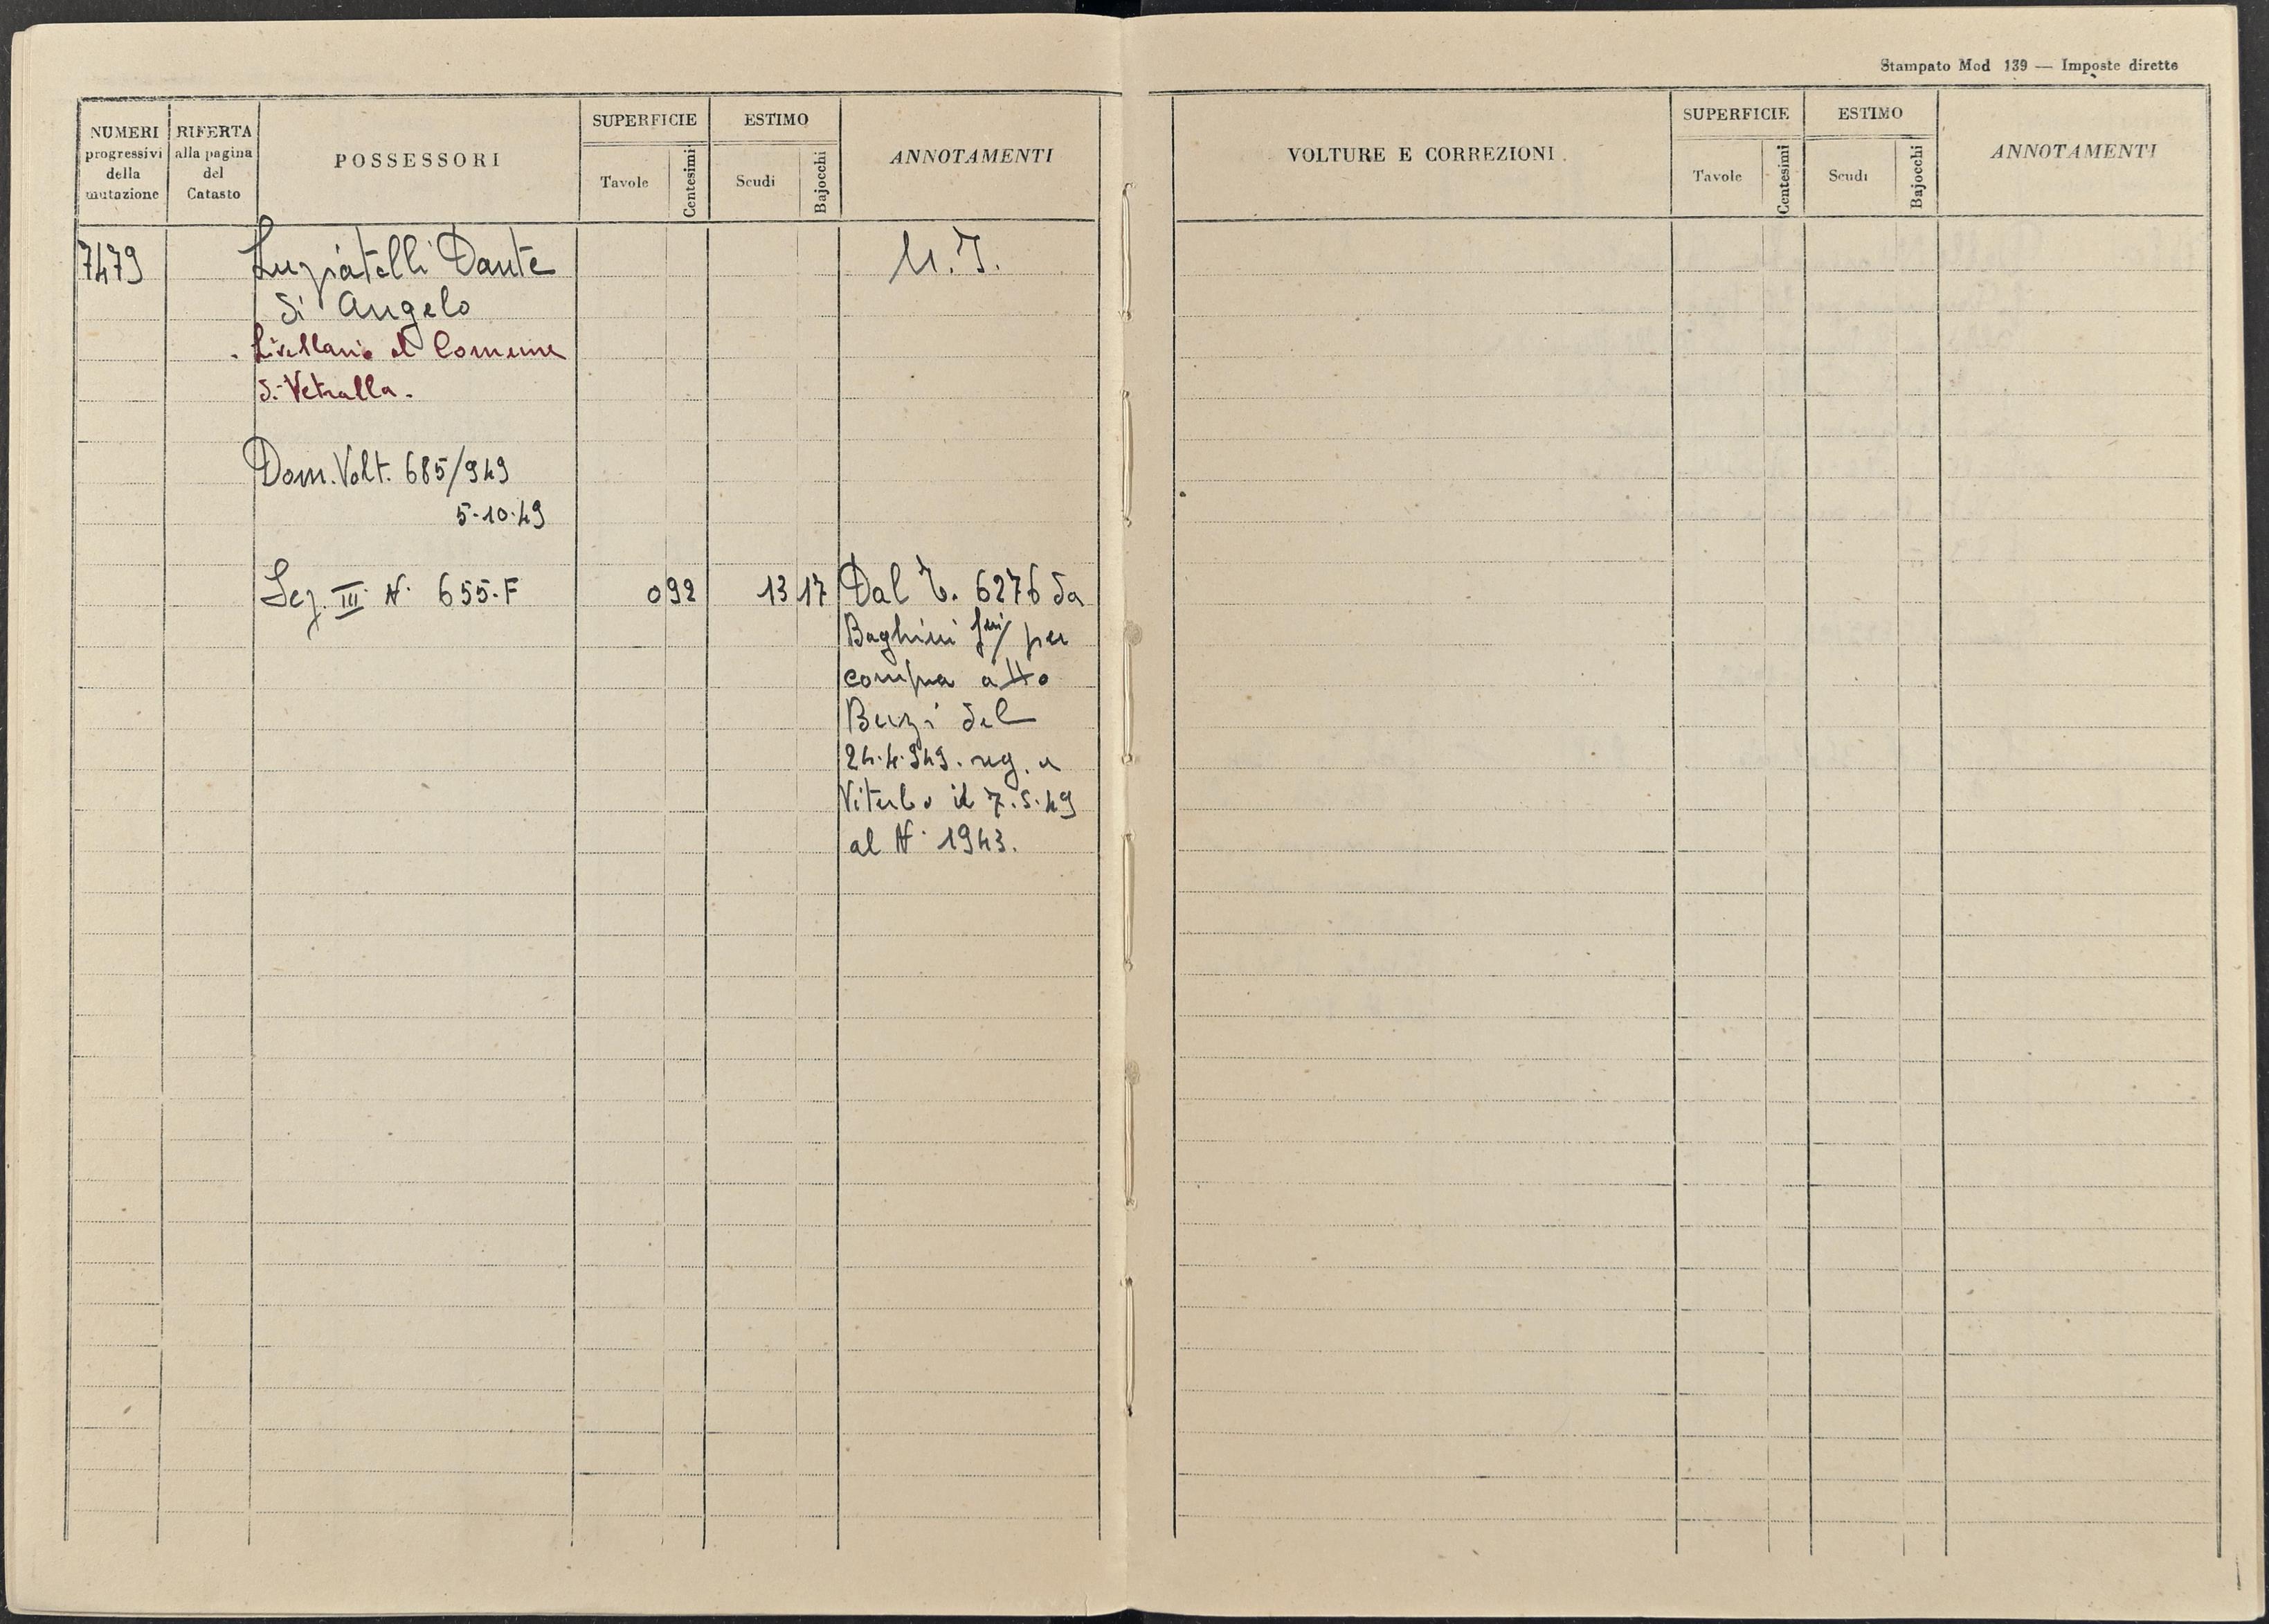 Stampato Mod 139 — Imposte dirette
NUMERI progressivi della mutazione
RIFERTA alla pagina del Catasto
POSSESSORI
SUPERFICIE
Tavole
Centesimi
ESTIMO
Scudi
Bajocchi
ANNOTAMENTI
7479
Luziatelli Dante
di Angelo
Livellario al Comune
di Vetralla.
Dom. Volt. 685/949
5-10-49
Sez. III N. 655-F
0 92
13 17
U. I.
Dal T. 6276 da
Baghini per
compra atto
Buzi del
24.4.949. reg. a
Viterbo il 7.5.49
al N. 1943.
VOLTURE E CORREZIONI.
SUPERFICIE
Tavole
Centesimi
ESTIMO
Scudi
Bajocchi
ANNOTAMENTI